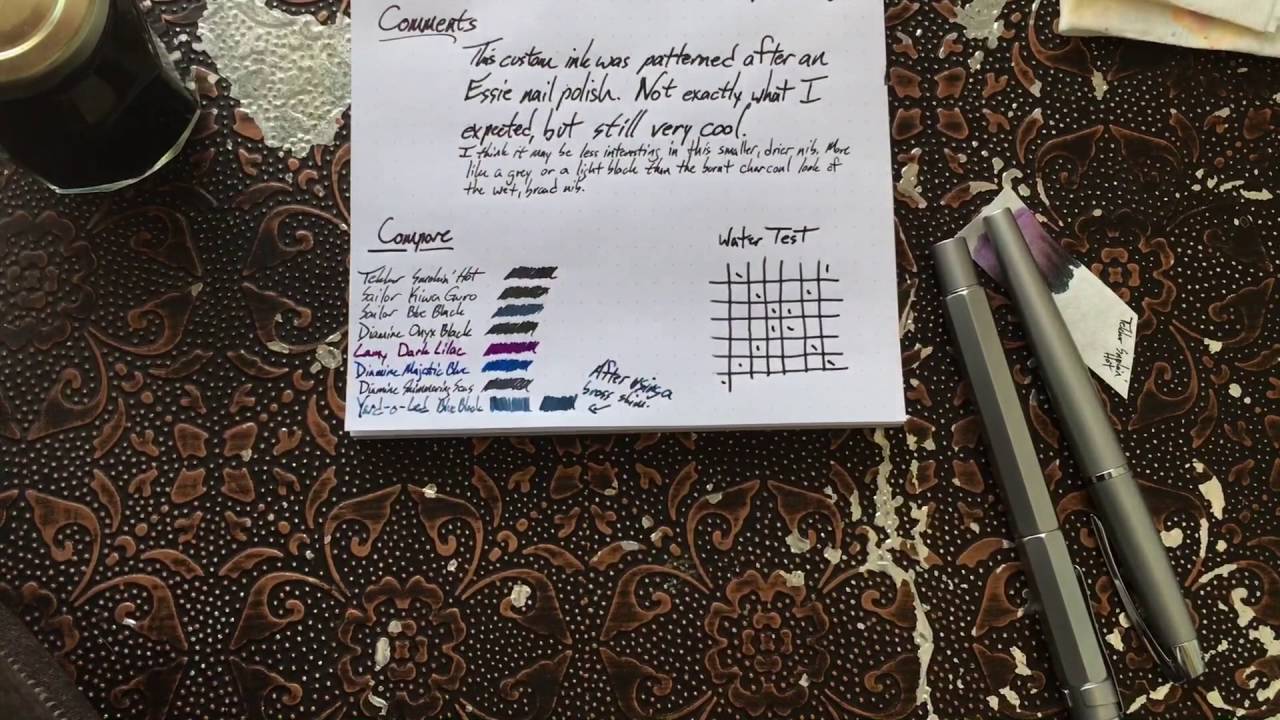 Comments
This custom ink was patterned after an
Essie nail polish. Not exactly what I
expected, but still very cool.
I think it may be less interesting in this smaller, drier nib. More
like a grey or a light black than the burnt charcoal look of
the wet, broad nib.
Compare
Water Test
Smokin' Hot
Sailor Kiwa Guro
Sailor Blue Black
Diamine Onyx Black
Lamy Dark Lilac
Diamine Majestic Blue
Diamine Shimmering Seas
Yard-o-Led Blue Black
After using a
brass shim.
Smokin'
Hot